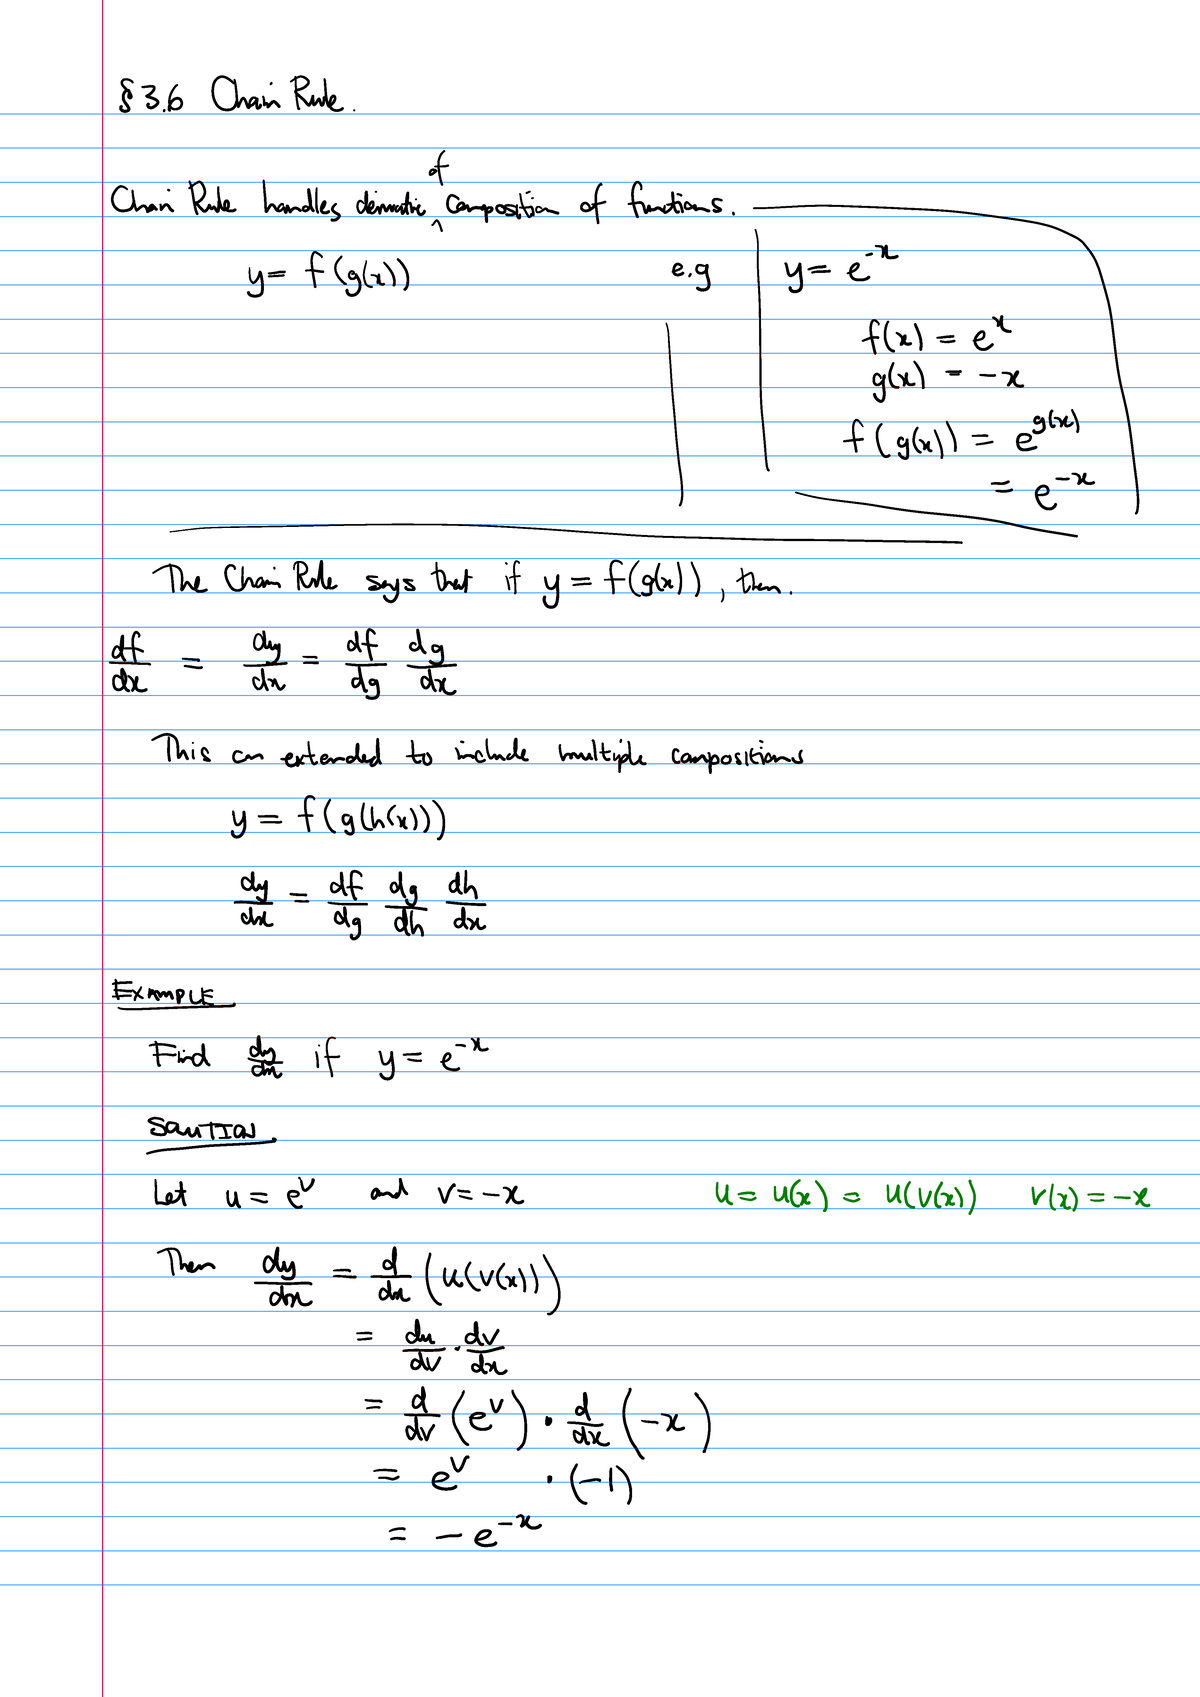 §3.6 Chain Rule.
Chain Rule handles derivative ^of composition of functions.
y = f(g(x))
e.g
y = e^{-x}
f(x) = e^x
g(x) = -x
f(g(x)) = e^{g(x)}
= e^{-x}
The Chain Rule says that if y = f(g(x)), then.
df/dx = dy/dx = df/dg dg/dx
This can extended to include multiple compositions
y = f(g(h(x)))
dy/dx = df/dg dg/dh dh/dx
EXAMPLE
Find dy/dx if y = e^{-x}
SOLUTION.
Let u = e^v and v = -x u = u(x) = u(v(x)) v(x) = -x
Then dy/dx = d/dx (u(v(x)))
= du/dv · dv/dx
= d/dv (e^v) · d/dx (-x)
= e^v · (-1)
= -e^{-x}